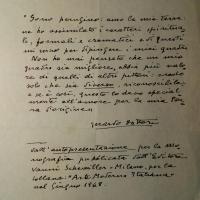 "Sono perugino: amo la mia terra:
ne ho assimilato i caratteri spiritua-
li, formali e cromatici e di questi
mi servo per dipingere i miei quadri.
Non ho mai pensato che un mio
quadro sia migliore, abbia più valo-
re di quelli di altri pittori: credo
solo che sia diverso, riconoscibile:
e se è così, questo lo devo special
mente all'amore per la mia ter-
ra d'origine".
Gerardo Dottori
dall'autopresentazione per la mo-
nografia pubblicata dall'Editore
Vanni Scheiwiller - Milano, per la
collana "Arte Moderna Italiana"
nel giugno 1968.